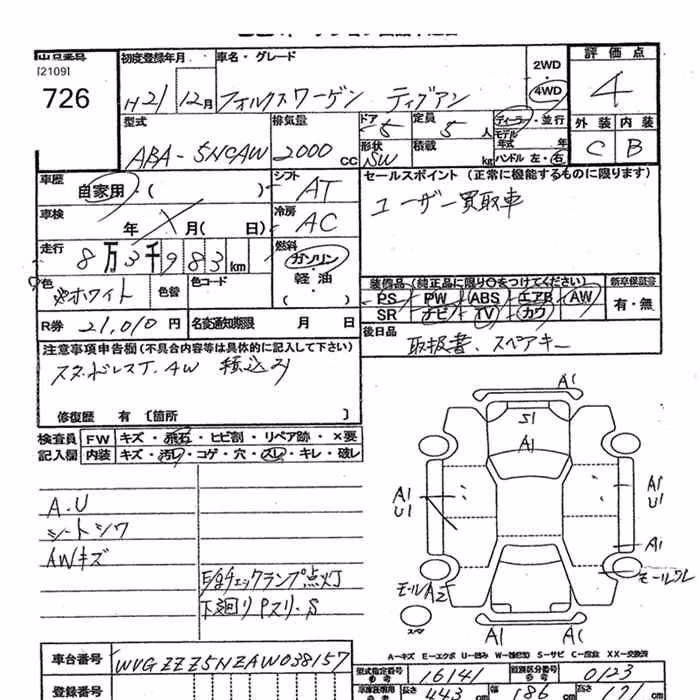 出品番号 初度登録年月 車名・グレード 2WD 評価点
[2109]
726 H21 12月 フォルクスワーゲン ティグアン 4WD 4
型式 排気量 ドア 5 定員 5 人 ディーラー・並行 外装 内装
ABA-5NCAW 2000 cc 形状 SW 積載 kg モデル年式 年 ハンドル 左・右 C B
車歴 自家用・( ) シフト AT セールスポイント (正常に機能するものに限ります)
車検 年 月( 日) 冷房 AC ユーザー買取車
走行 8万3千983km 燃料 ガソリン・軽油
色 ホワイト 色替 色コード ( ) 装備品 (純正品に限り○をつけてください) 新車保証書
PS PW ABS エアB AW 有・無
SR ナビ TV カワ
R券 21,010円 名変通知期限 月 日 後日品
取扱書、スペアキー
注意事項申告欄 (不具合内容等は具体的に記入して下さい)
スタッドレスT.AW 積込み
修復歴 有 〔箇所 〕
検査員 FW キズ・飛石・ヒビ割・リペア跡・×要
記入欄 内装 キズ・汚レ・コゲ・穴・スレ・キレ・破レ
A.U
シートシワ
AWキズ
E/gチェックランプ点灯
下廻りPスリ.S
A1
S1
A1
A1
U1
A1
U1
A1
モールA2
モールワレ
スペア
A1 A1
A-キズ E-エクボ U-凹み W-補修跡 S-サビ C-腐食 XX-交換済
車台番号 WVGZZZ5NZAW038157 型式指定番号 16141 類別区分番号 0123
登録番号 長さ 443 cm 幅 186 cm 高さ 171 cm